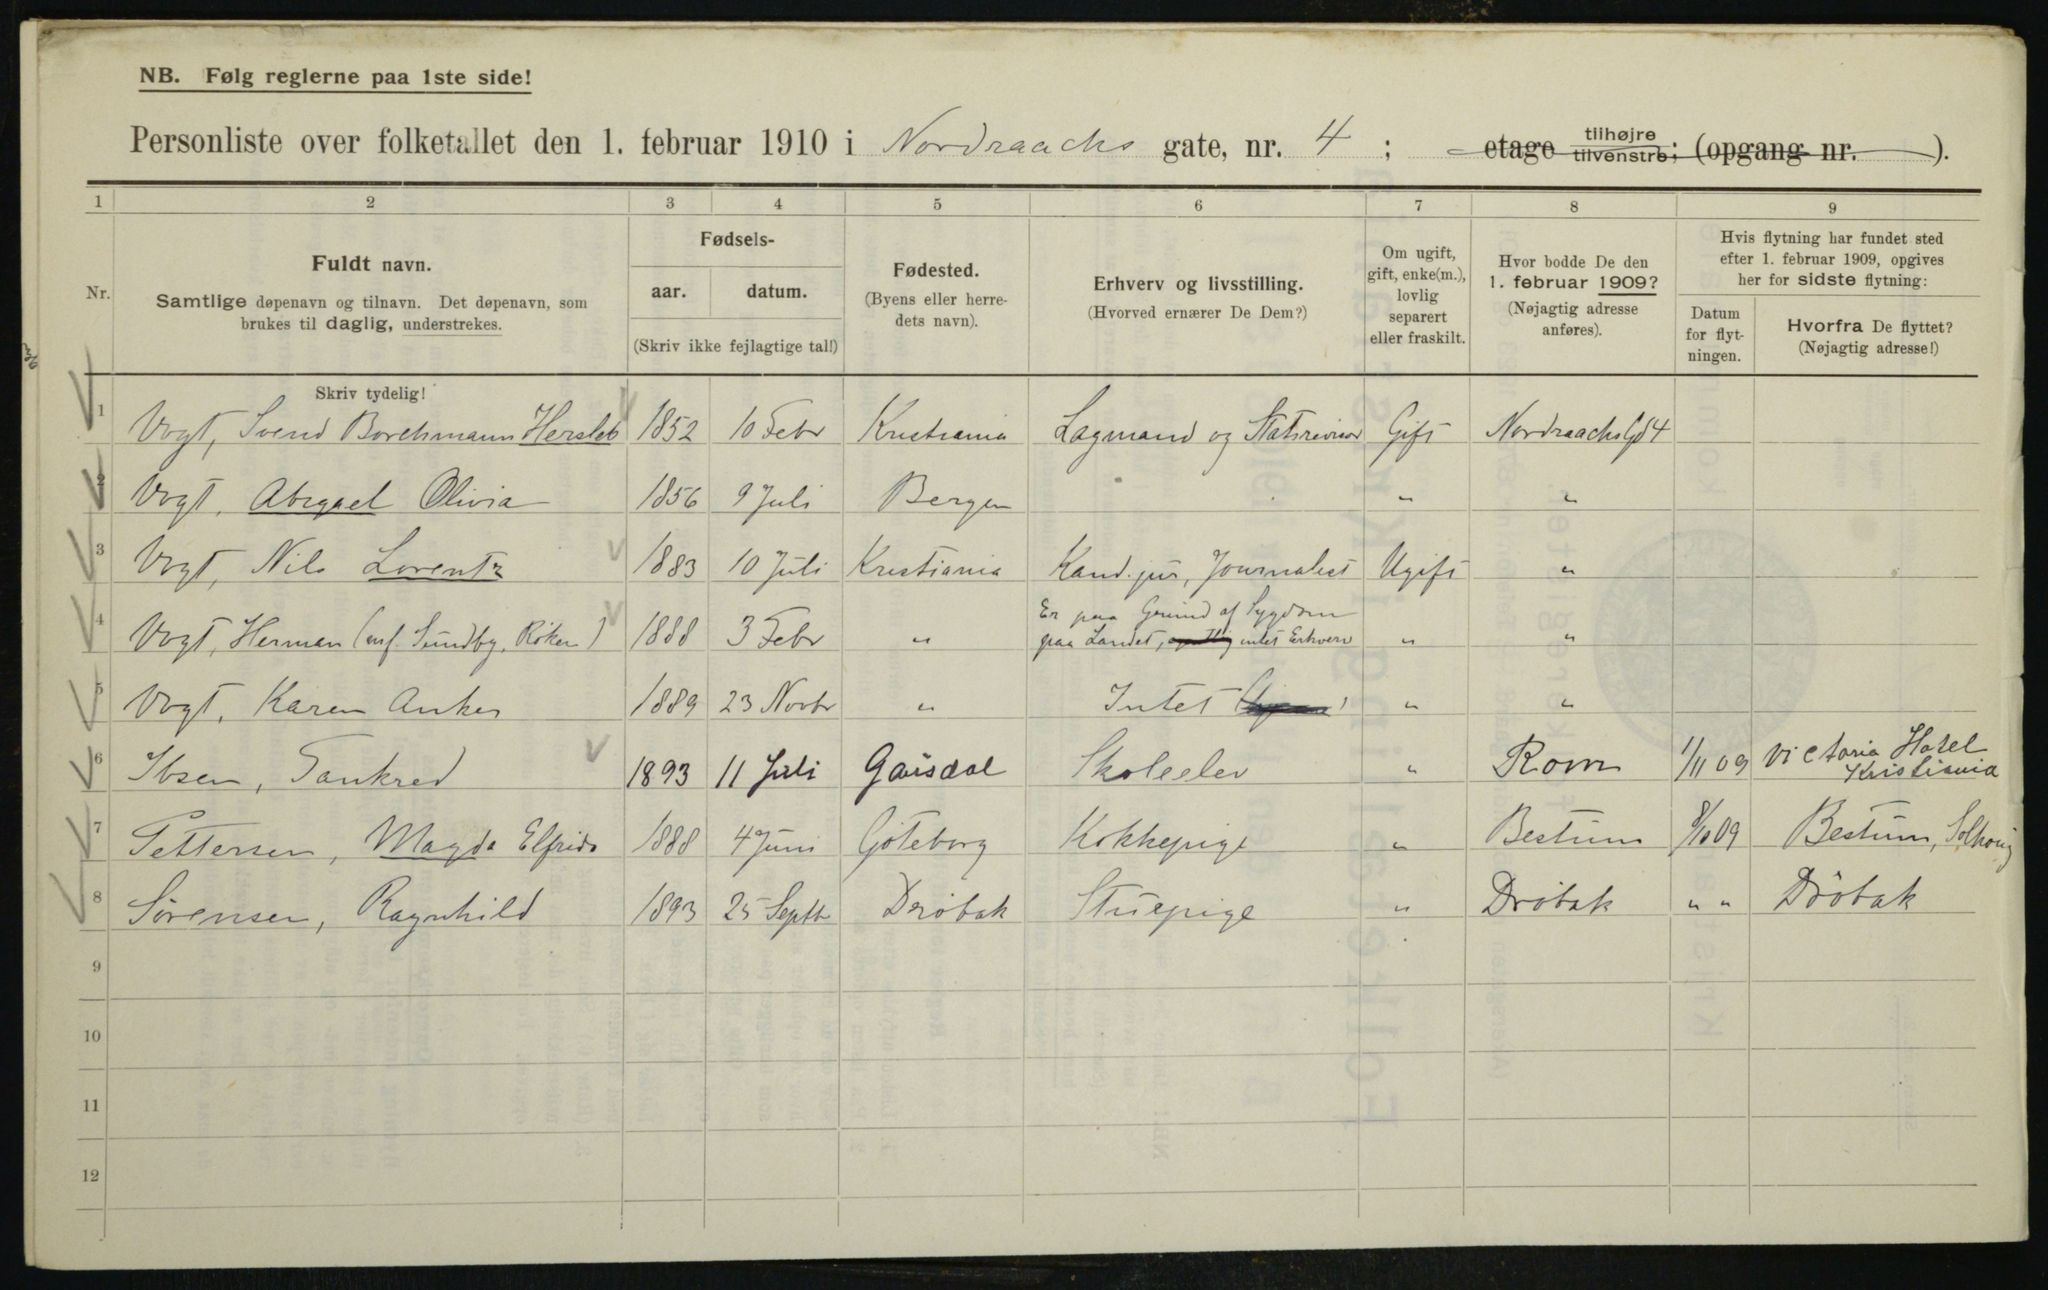 NB. Følg reglerne paa 1ste side!
Personliste over folketallet den 1. februar 1910 i Nordraachs gate, nr. 4 ; etage tilhøjre tilvenstre; (opgang nr. ).
1 2 3 4 5 6 7 8 9
Nr.
Fuldt navn.
Samtlige døpenavn og tilnavn. Det døpenavn, som
brukes til daglig, understrekes.
Fødsels-
aar. datum.
(Skriv ikke fejlagtige tal!)
Fødested.
(Byens eller herre-
dets navn).
Erhverv og livsstilling.
(Hvorved ernærer De Dem?)
Om ugift,
gift, enke(m.),
lovlig
separert
eller fraskilt.
Hvor bodde De den
1. februar 1909?
(Nøjagtig adresse
anføres).
Hvis flytning har fundet sted
efter 1. februar 1909, opgives
her for sidste flytning:
Datum
for flyt-
ningen.
Hvorfra De flyttet?
(Nøjagtig adresse!)
Skriv tydelig!
1 Vogt, Svend Borchmann Hersleb 1852 10 Febr Kristiania Lagmand og Statsrevisor Gift Nordraachs Gd 4
2 Vogt, Abegael Olivia 1856 9 Juli Bergen " "
3 Vogt, Nils Lorentz 1883 10 Juli Kristiania Kand. jur, Journalist Ugift "
4 Vogt, Herman (mf. Sundby, Röken) 1888 3 Febr " Er paa Grund af Sygdom
paa Landet, intet Erhverv " "
5 Vogt, Karen Anker 1889 23 Novbr " Intet " "
6 Ibsen, Tankred 1893 11 Juli Gausdal Skoleelev " Rom 1/11 09 Victoria Hotel
Kristiania
7 Pettersen, Magda Elfrida 1888 4 Juni Göteborg Kokkepige " Bestum 8/10 09 Bestum, Solhaug
8 Sörensen, Ragnhild 1893 25 Septbr Dröbak Stuepige " Dröbak " " Dröbak
9
10
11
12